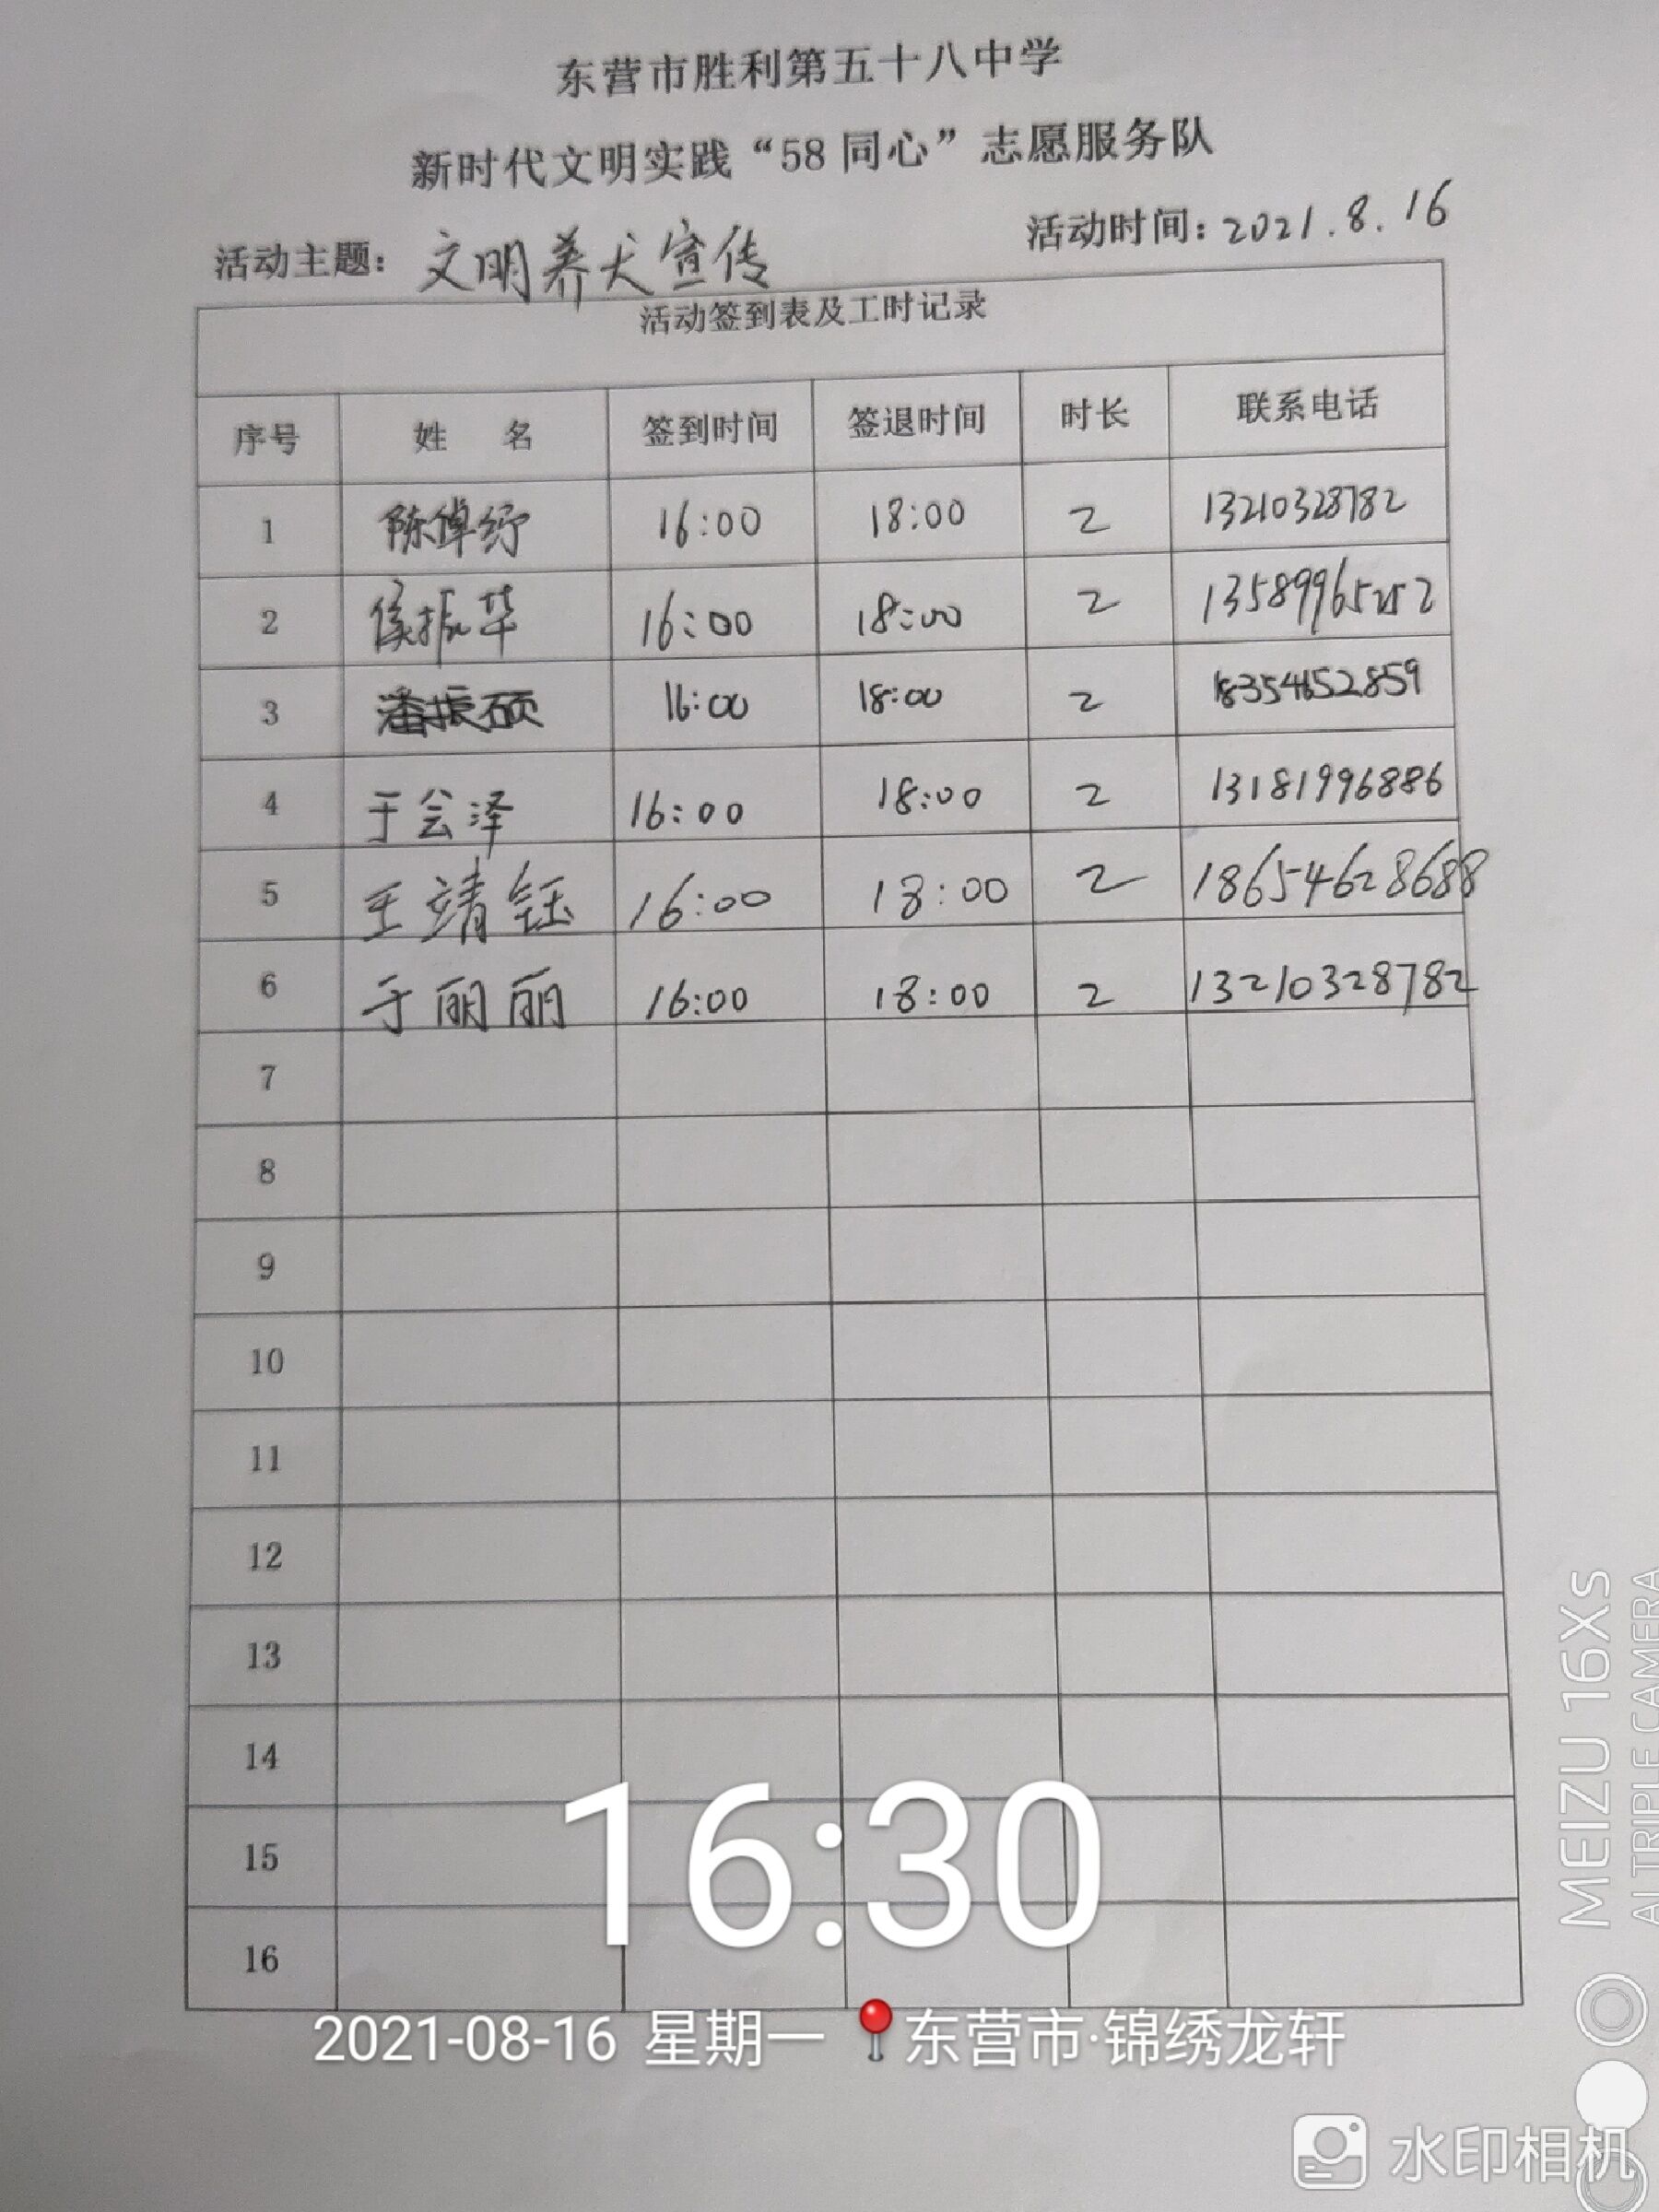 东营市胜利第五十八中学
新时代文明实践“58 同心”志愿服务队
活动主题：文明养犬宣传 活动时间：2021.8.16
活动签到表及工时记录
序号 姓 名 签到时间 签退时间 时长 联系电话
1 陈倬纾 16:00 18:00 2 13210328782
2 侯振华 16:00 18:00 2 13589965252
3 潘振硕 16:00 18:00 2 18354652859
4 于会泽 16:00 18:00 2 13181996886
5 王靖钰 16:00 18:00 2 18654628688
6 于丽丽 16:00 18:00 2 13210328782
7
8
9
10
11
12
13
14
15
16
16:30
2021-08-16 星期一 东营市·锦绣龙轩
水印相机
MEIZU 16Xs
AI TRIPLE CAMERA